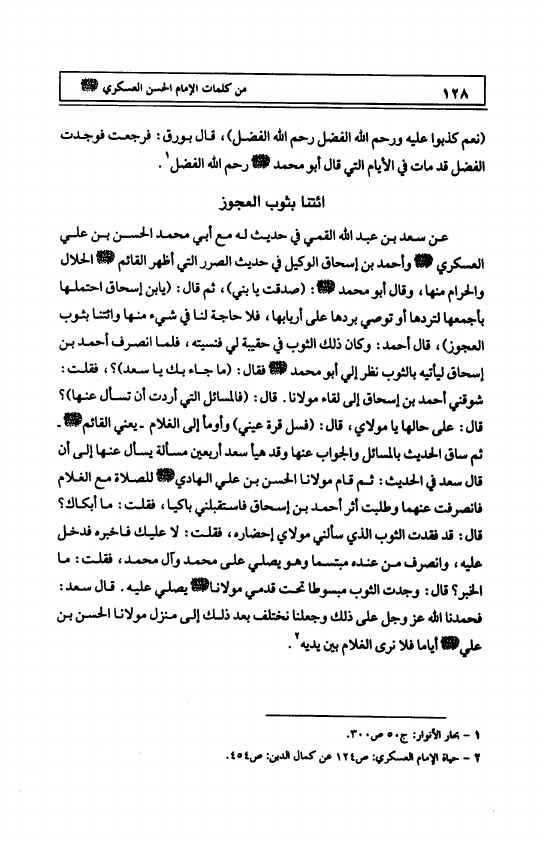 ١٢٨ من كلمات الإمام الحسن العسكري
(نعم كذبوا عليه ورحم الله الفضل رحم الله الفضل)، قال بورق: فرجعت فوجدت
الفضل قد مات في الأيام التي قال أبو محمد رحم الله الفضل¹.
ائتنا بثوب العجوز
عن سعد بن عبد الله القمي في حديث له مع أبي محمد الحسن بن علي
العسكري وأحمد بن إسحاق الوكيل في حديث الصرر التي أظهر القائم الحلال
والحرام منها، وقال أبو محمد: (صدقت يا بني)، ثم قال: (يابن إسحاق احتملها
بأجمعها لتردها أو توصي بردها على أربابها، فلا حاجة لنا في شيء منها وائتنا بثوب
العجوز)، قال أحمد: وكان ذلك الثوب في حقيبة لي فنسيته، فلما انصرف أحمد بن
إسحاق ليأتيه بالثوب نظر إلي أبو محمد فقال: (ما جاء بك يا سعد)؟، فقلت:
شوقني أحمد بن إسحاق إلى لقاء مولانا. قال: (فالمسائل التي أردت أن تسأل عنها)؟
قال: على حالها يا مولاي، قال: (فسل قرة عيني) وأومأ إلى الغلام ـ يعني القائم ـ
ثم ساق الحديث بالمسائل والجواب عنها وقد هيأ سعد أربعين مسألة يسأل عنها إلى أن
قال سعد في الحديث: ثم قام مولانا الحسن بن علي الهادي للصلاة مع الغلام
فانصرفت عنهما وطلبت أثر أحمد بن إسحاق فاستقبلني باكيا، فقلت: ما أبكاك؟
قال: قد فقدت الثوب الذي سألني مولاي إحضاره، فقلت: لا عليك فاخبره فدخل
عليه، وانصرف من عنده مبتسما وهو يصلي على محمد وآل محمد، فقلت: ما
الخبر؟ قال: وجدت الثوب مبسوطا تحت قدمي مولانا يصلي عليه. قال سعد:
فحمدنا الله عز وجل على ذلك وجعلنا نختلف بعد ذلك إلى منزل مولانا الحسن بن
علي أياما فلا نرى الغلام بين يديه².
١ - بحار الأنوار: ج٥٠ ص٣٠٠.
٢ - حياة الإمام العسكري: ص١٢٤ عن كمال الدين: ص٤٥٤.